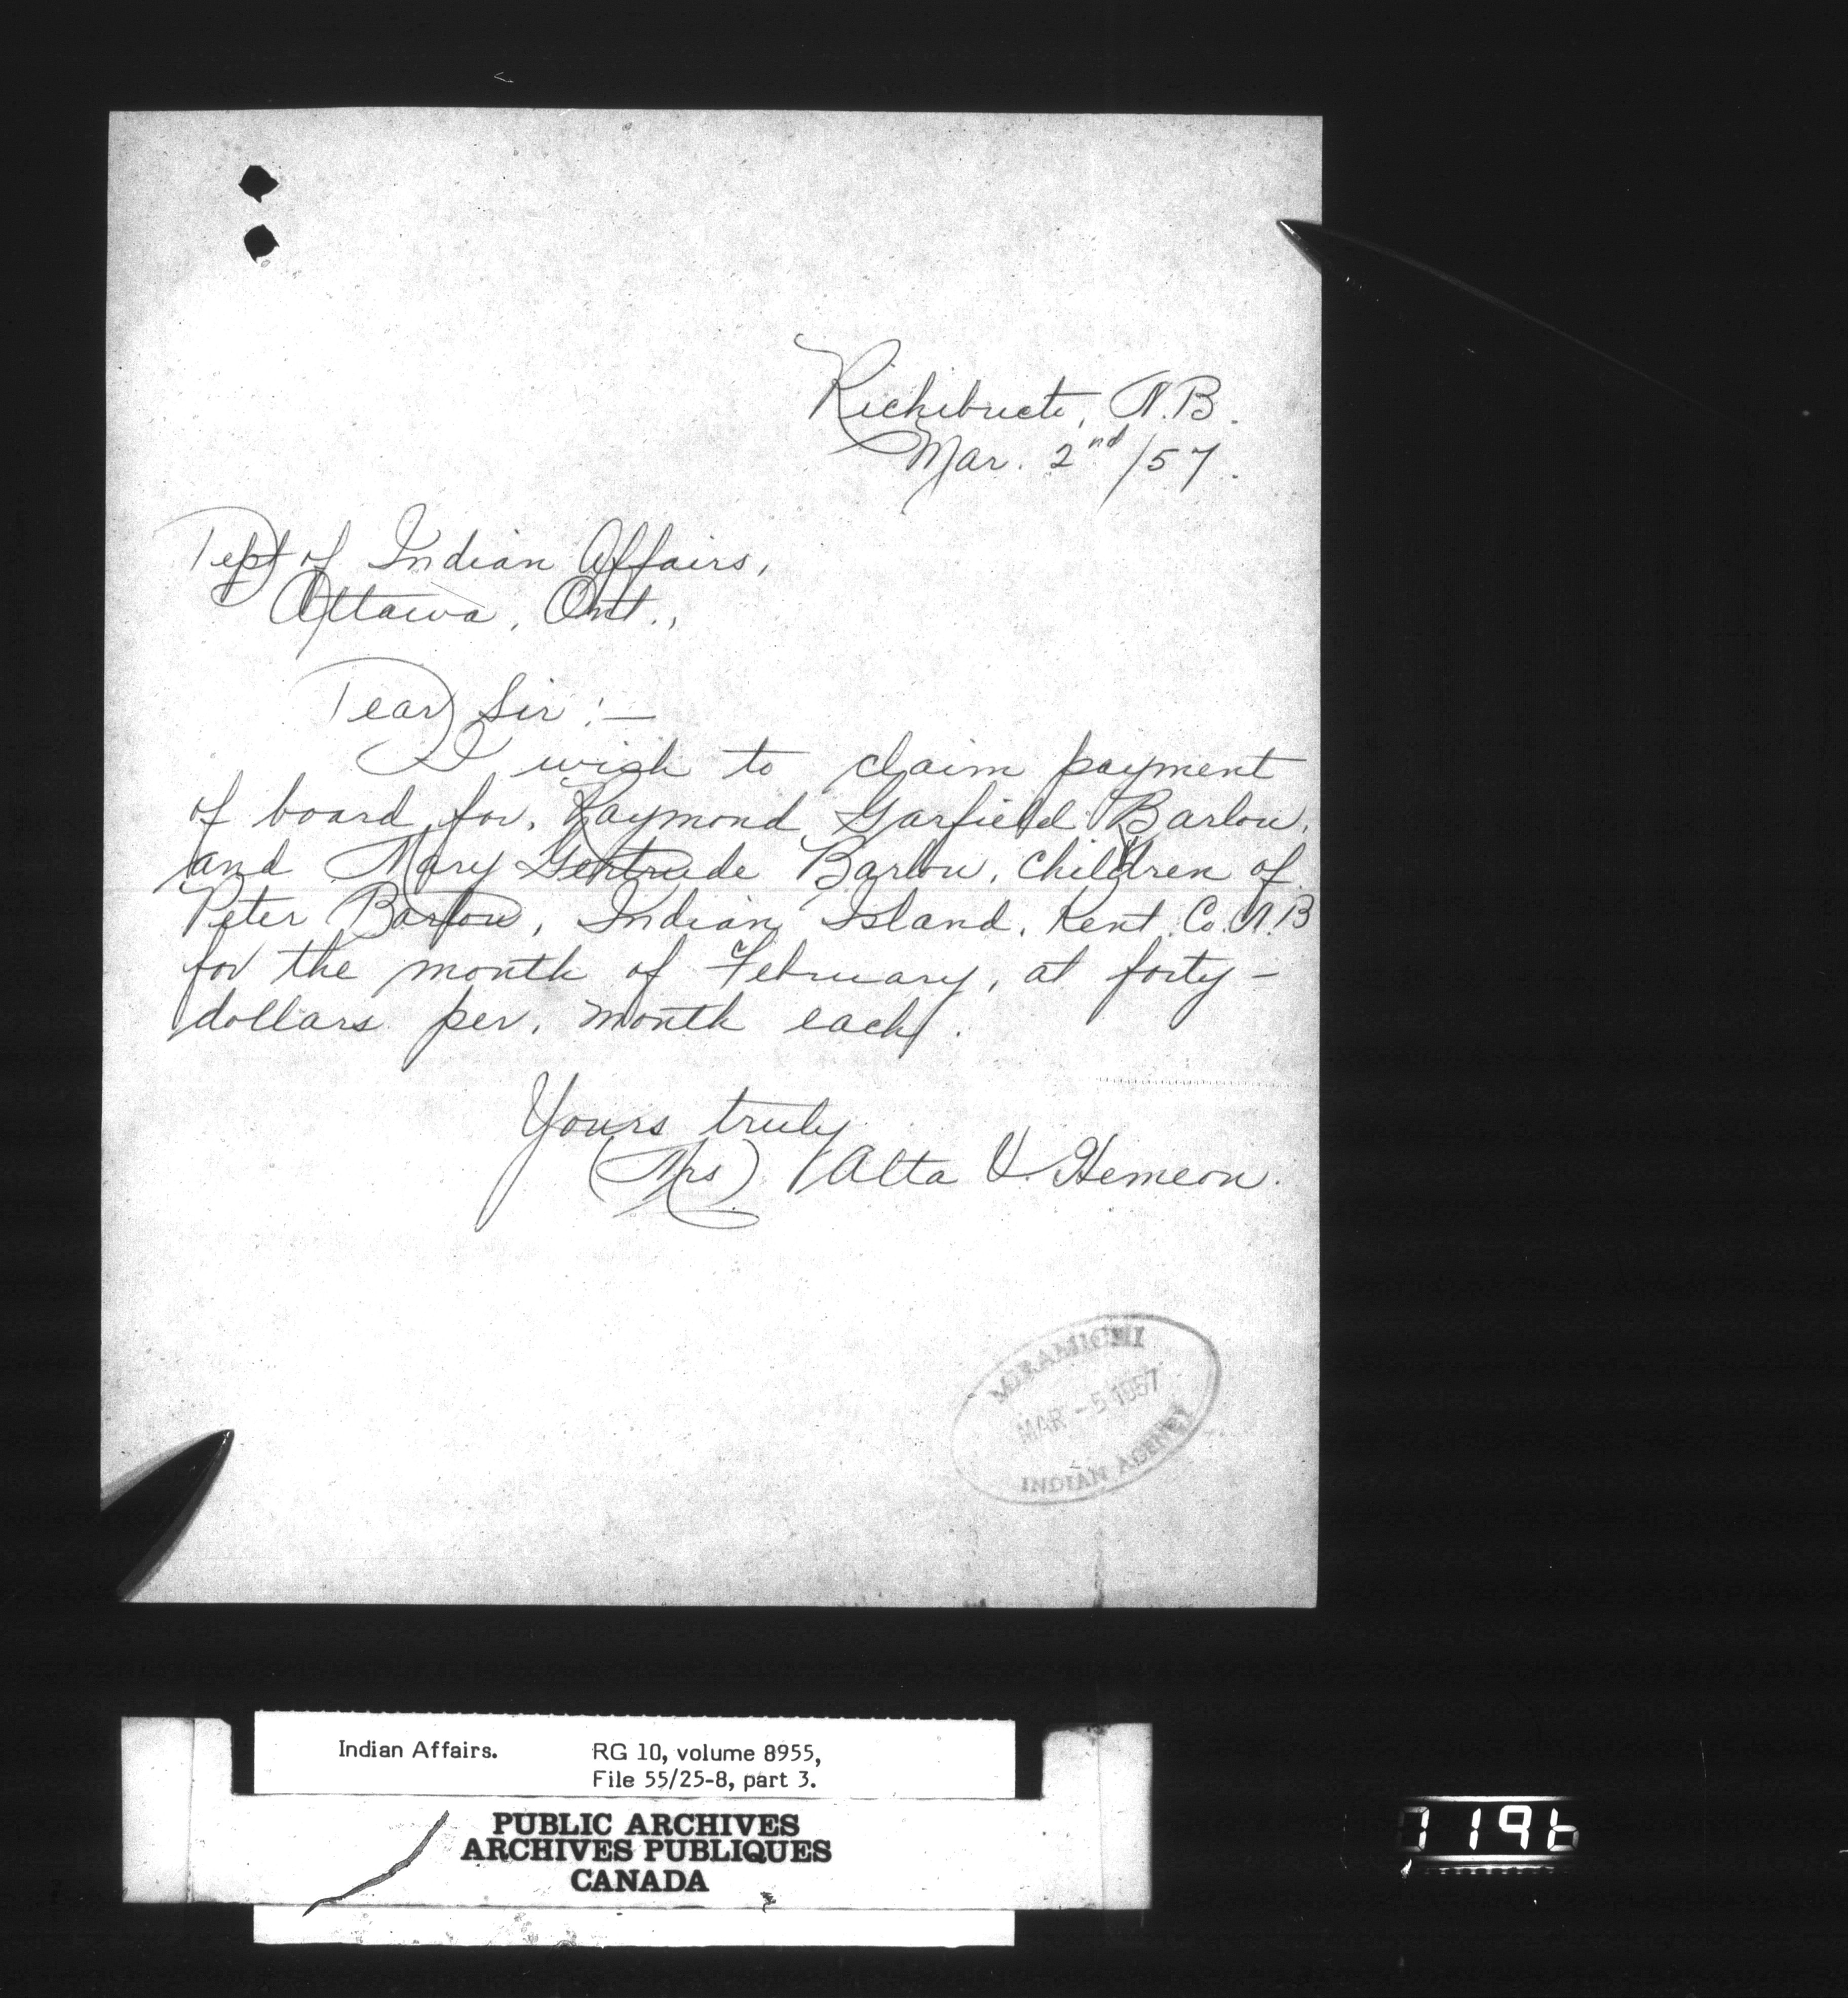 Richibucto, N.B.
Mar. 2nd/57.
Dept of Indian Affairs,
Ottawa, Ont.,
Dear Sir:—
I wish to claim payment
of board for, Raymond Garfield Barlow,
and Mary Gertrude Barlow, children of
Peter Barlow, Indian Island, Kent Co. N.B
for the month of February, at forty-
dollars per, month each.
Yours truly
(Mrs) Alta V. Hemeon.
MIRAMICHI
MAR - 5 1957
INDIAN AGENCY
Indian Affairs. RG 10, volume 8955,
File 55/25-8, part 3.
PUBLIC ARCHIVES
ARCHIVES PUBLIQUES
CANADA